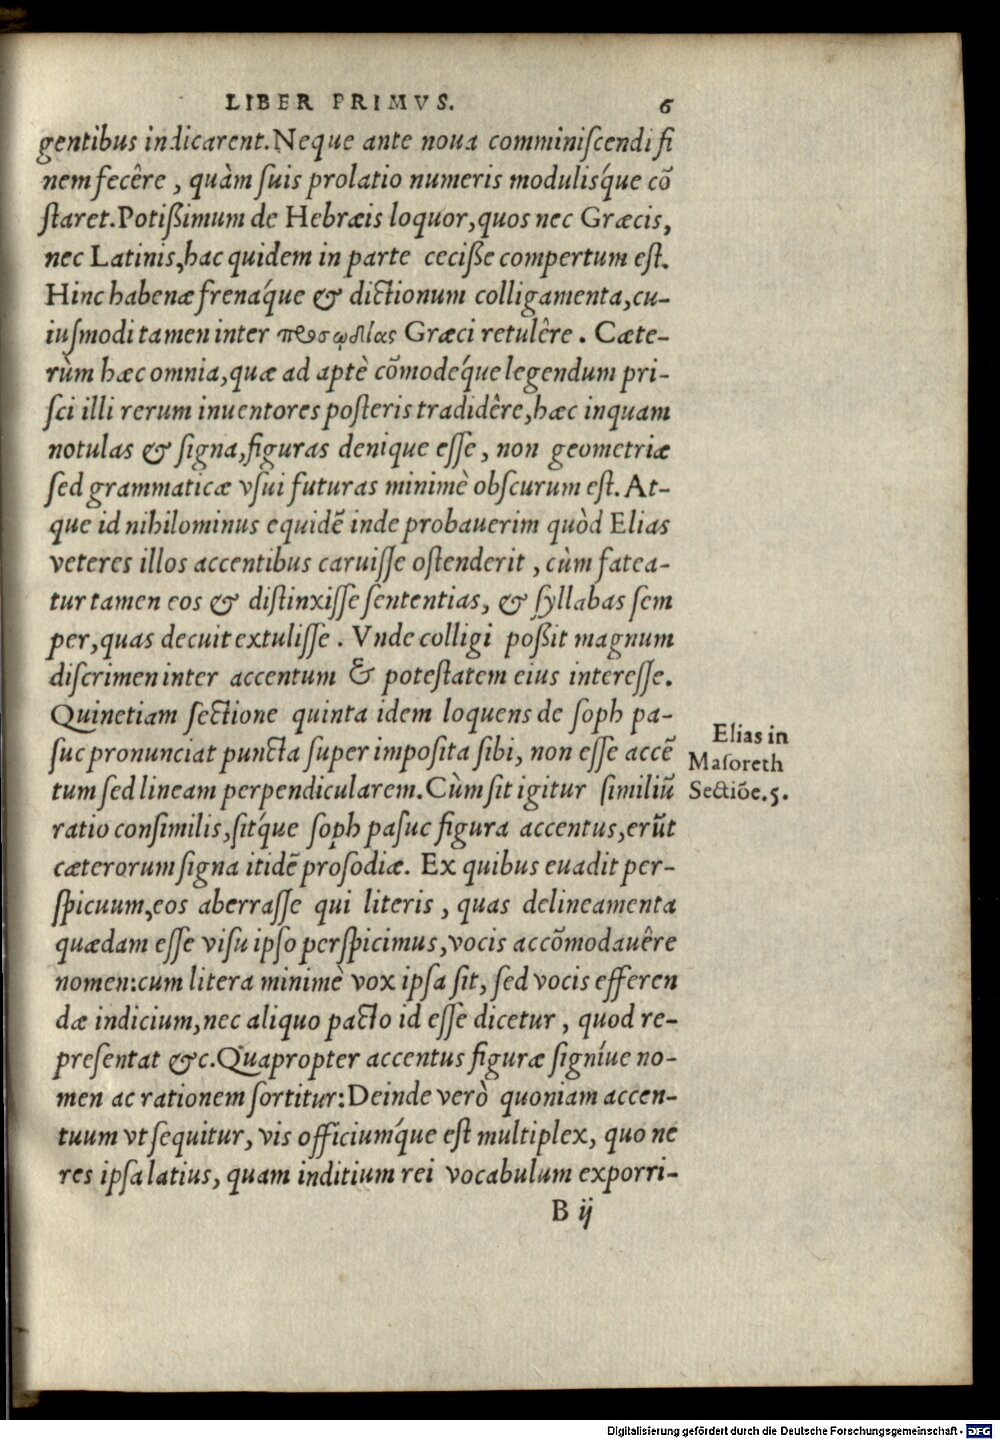 LIBER PRIMVS. 6
gentibus indicarent. Neque ante noua comminiſcendi fi
nem fecêre, quàm ſuis prolatio numeris moduliſq́ue cõ
ſtaret. Potißimum de Hebræis loquor, quos nec Græcis,
nec Latinis, hac quidem in parte ceciße compertum eſt.
Hinc habenæ frenáque & dictionum colligamenta, cu-
iuſmodi tamen inter προσῳδίας Græci retulêre. Cæte-
rùm hæc omnia, quæ ad aptè cõmodeq́ue legendum pri-
ſci illi rerum inuentores poſteris tradidêre, hæc inquam
notulas & ſigna, figuras denique eſſe, non geometriæ
ſed grammaticæ vſui futuras minimè obſcurum eſt. At-
que id nihilominus equidẽ inde probauerim quòd Elias
veteres illos accentibus caruiſſe oſtenderit, cùm fatea-
tur tamen eos & diſtinxiſſe ſententias, & ſyllabas ſem
per, quas decuit extuliſſe. Vnde colligi poßit magnum
diſcrimen inter accentum & poteſtatem eius intereſſe.
Quinetiam ſectione quinta idem loquens de ſoph pa-
ſuc pronunciat puncta ſuper impoſita ſibi, non eſſe accẽ
tum ſed lineam perpendicularem. Cùm ſit igitur ſimiliũ
ratio conſimilis, ſitq́ue ſoph paſuc figura accentus, erũt
cæterorum ſigna itidẽ proſodiæ. Ex quibus euadit per-
ſpicuum, eos aberraſſe qui literis, quas delineamenta
quædam eſſe viſu ipſo perſpicimus, vocis accõmodauêre
nomen: cum litera minimè vox ipſa ſit, ſed vocis efferen
dæ indicium, nec aliquo pacto id eſſe dicetur, quod re-
preſentat &c. Quapropter accentus figuræ ſigníue no-
men ac rationem ſortitur: Deinde verò quoniam accen-
tuum vt ſequitur, vis officiumq́ue eſt multiplex, quo ne
res ipſa latius, quam inditium rei vocabulum exporri-
B ij
Elias in
Maſoreth
Sectiõe. 5.
Digitalisierung gefördert durch die Deutsche Forschungsgemeinschaft - DFG